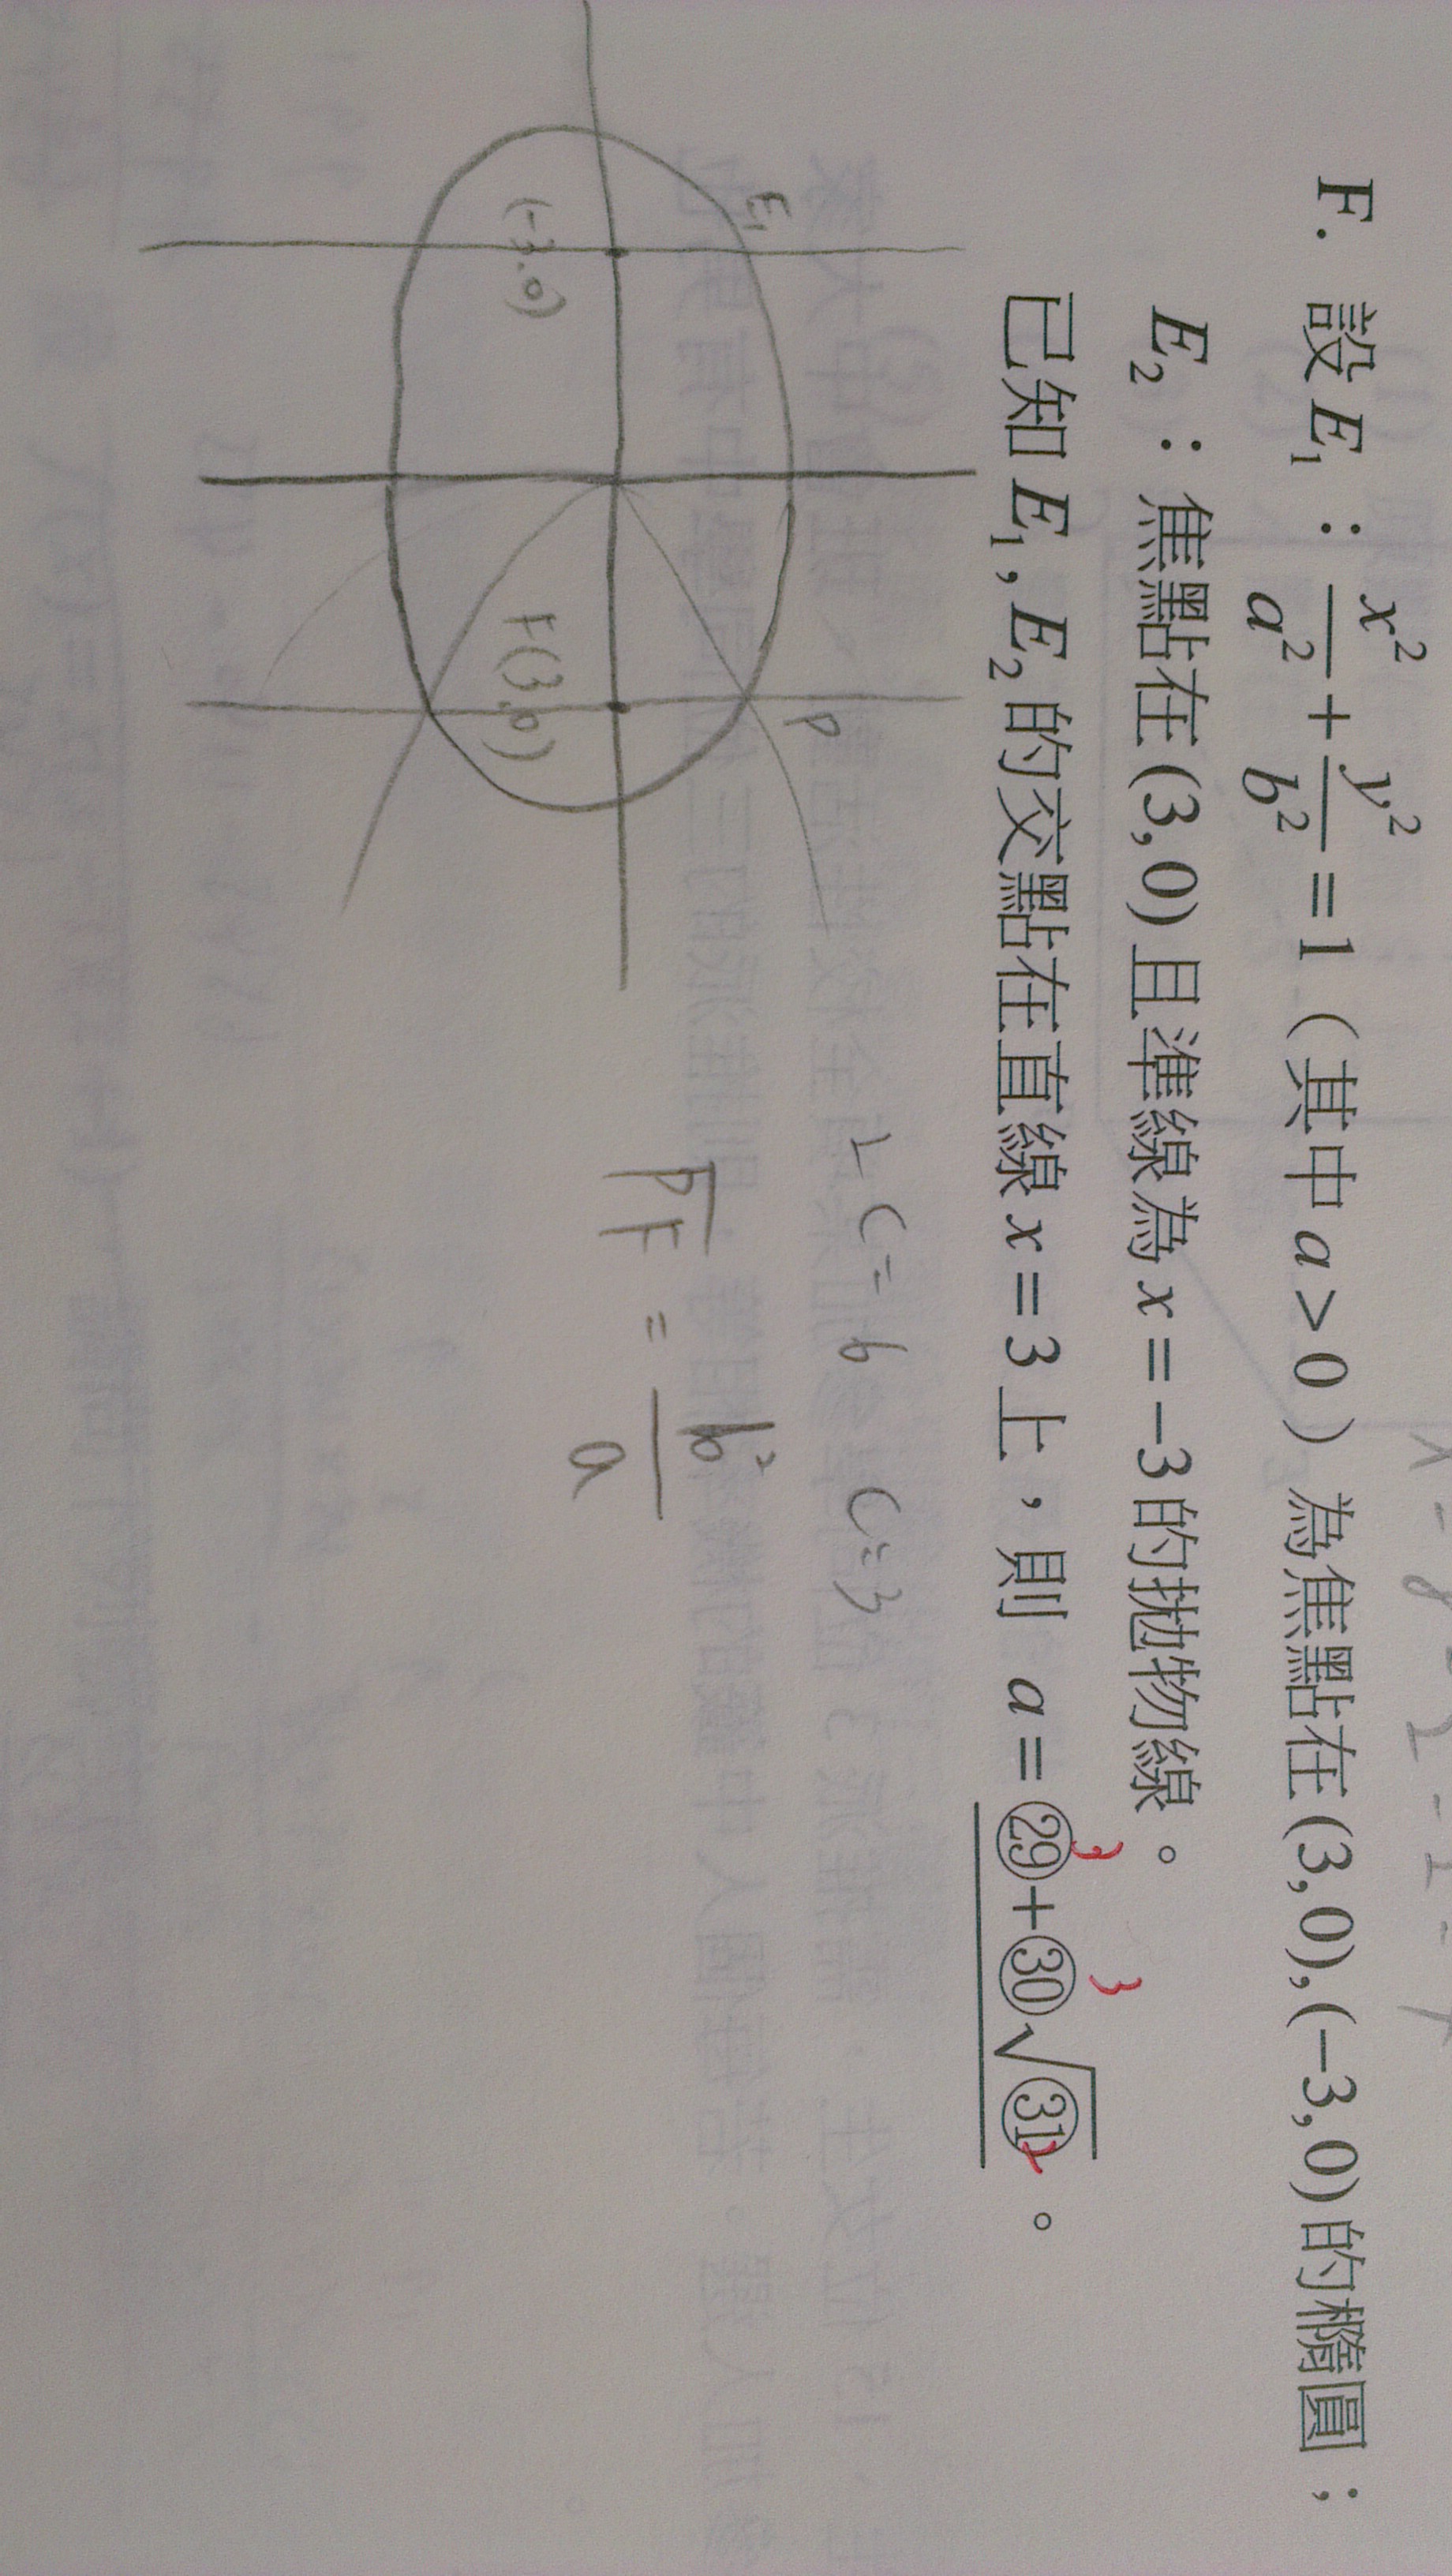 F. 設 E₁：x²/a² + y²/b² = 1（其中 a > 0）為焦點在 (3,0), (−3,0) 的橢圓；
E₂：焦點在 (3,0) 且準線為 x = −3 的拋物線。
已知 E₁, E₂ 的交點在直線 x = 3 上，則 a = ㉙ + ㉚√㉛。
3 3 2
2c=6 c=3
E₁
P
(-3,0)
F(3,0)
PF = b²/a